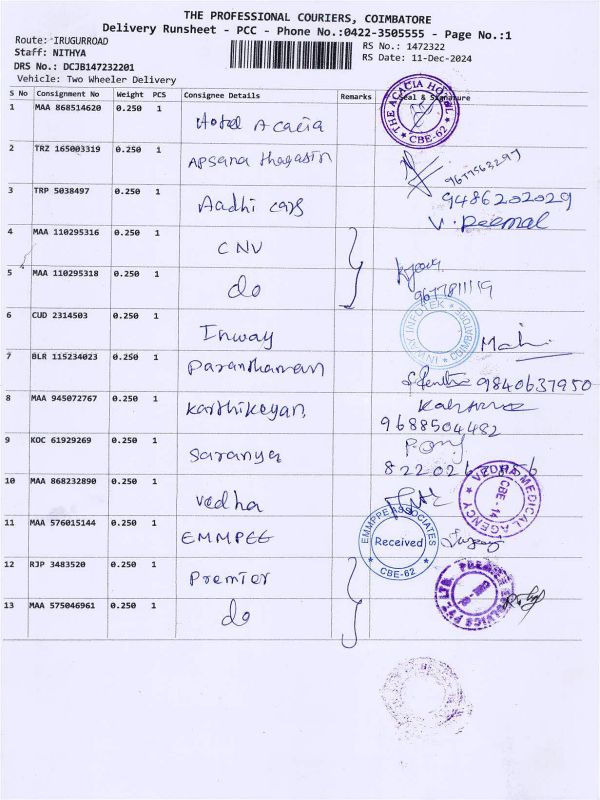 THE PROFESSIONAL COURIERS, COIMBATORE
Delivery Runsheet - PCC - Phone No.:0422-3505555 - Page No.:1
Route: IRUGURROAD
RS No.: 1472322
Staff: NITHYA
RS Date: 11-Dec-2024
DRS No.: DCJB147232201
Vehicle: Two Wheeler Delivery
S No Consignment No Weight PCS Consignee Details Remarks Seal & Signature
1 MAA 868514620 0.250 1 Hotel Acacia
THE ACACIA HOTEL CBE-62
2 TRZ 165003319 0.250 1 Apsana
9677563297
3 TRP 5038497 0.250 1 Aadhi cars
9486202029
V. Peemal
4 MAA 110295316 0.250 1 CNV
5 MAA 110295318 0.250 1 do
9677811119
6 CUD 2314503 0.250 1 Inway
INWAY INFOTEK COIMBATORE
7 BLR 115234023 0.250 1 Paranthaman
9840637950
8 MAA 945072767 0.250 1 Karthikeyan
9688504482
9 KOC 61929269 0.250 1 Saranya
10 MAA 868232890 0.250 1 Vedha
VEDHA MEDICAL AGENCY CBE-14
11 MAA 576015144 0.250 1 EMMPEE
EMMPEE ASSOCIATES Received CBE-62
12 RJP 3483520 0.250 1 Premier
13 MAA 575046961 0.250 1 do